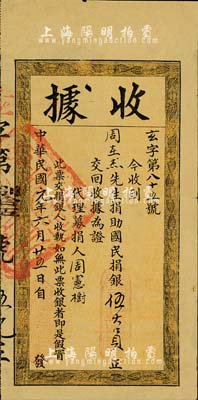 上海陽明拍賣
收據
玄字第八十五號
今收到
周立杰先生捐助國民捐銀伍大員正
交回收據為證
代理募捐人周憲樹
此票交捐銀人收執如無此票收銀者即是假冒
中華民國元年六月廿五日自發
上海陽明拍賣